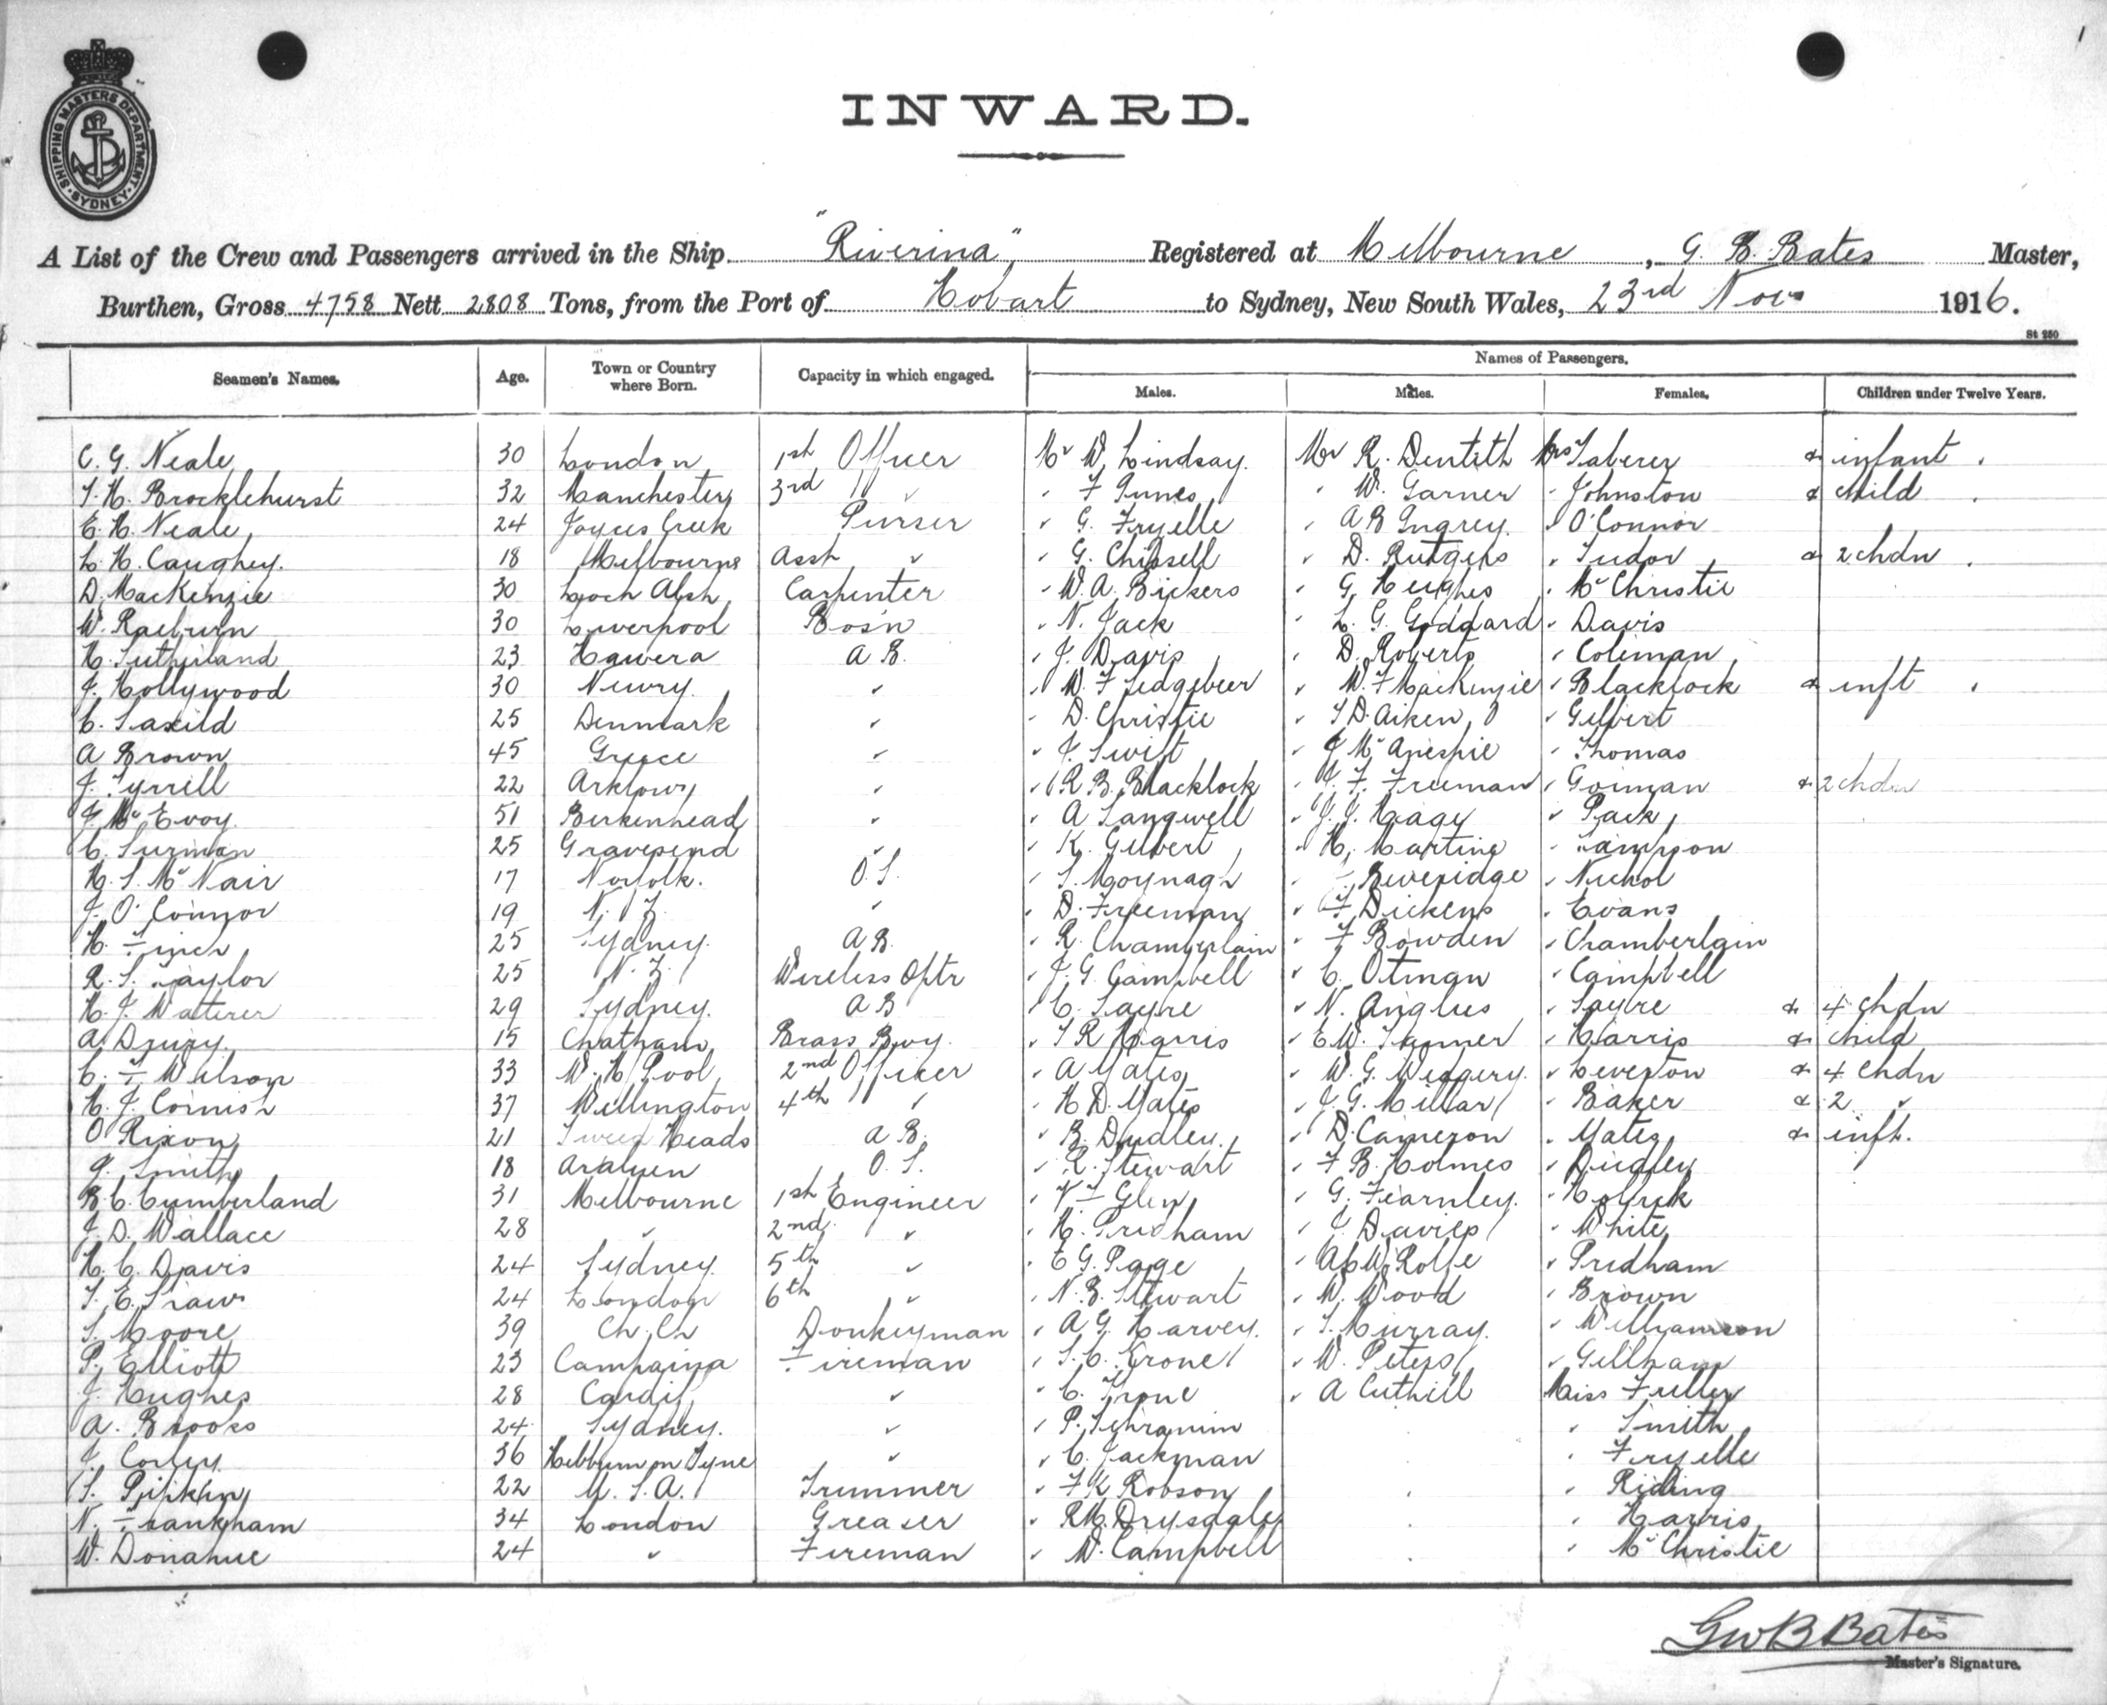 SHIPPING MASTERS DEPARTMENT
SYDNEY
INWARD.
A List of the Crew and Passengers arrived in the Ship "Riverina", Registered at Melbourne, G. B. Bates Master,
Burthen, Gross 4758 Nett 2808 Tons, from the Port of Hobart to Sydney, New South Wales, 23rd Nov 1916.
St 250
Seamen's Names. Age. Town or Country where Born. Capacity in which engaged. Names of Passengers.
Males. Males. Females. Children under Twelve Years.
C. G. Neale 30 London 1st Officer Mr W. Lindsay. Mr R. Dentith Mrs Taberer & infant
T. H. Brocklehurst 32 Manchester 3rd " F Innes W. Garner Johnston & child
E. H. Neale 24 Joyces Creek Purser G. Fryelle A B Ingrey. O'Connor
L. H. Caughey. 18 Melbourne Asst " G. Chipsell D. Rutgers Tudor & 2 chdn
D. MacKenzie 30 Loch Alsh Carpenter W. A. Bickers G. Hughes McChristie
W. Raeburn 30 Liverpool Bosn N. Jack L. G. Goddard Davis
H. Sutherland 23 Hawera A B. J. Davis D. Roberts Coleman
J. Hollywood 30 Newry. " W. F Sedgebeer W. F MacKenzie Blacklock & inft
C. Saxild 25 Denmark " D. Christie T D. Aiken Gilbert
A Brown 45 Greece " J. Swift J McAnespie Thomas
J. Tyrrill 22 Arklow " R. B. Blacklock J. F. Freeman Gorman & 2 chdn
J. McEvoy 51 Birkenhead " A Sangwell J. J. Hagy Pack
C. Surman 25 Gravesend " K. Gilbert H. Martine
H. S. McNair 17 Norfolk. O. S. S. Moynagh Beveridge Nichol
J. O'Connor 19 N. Z. " D. Freeman F Dickens Evans
H. Finch 25 Sydney. A B. R. Chamberlain F Bowden Chamberlain
R. S. Taylor 25 N. Z. Wireless Optr J. G. Campbell C. Otman Campbell
H. J. Watterer 29 Sydney. A B C. Sayre N. Anglus Sayre & 4 chdn
A. Drury. 15 Chatham Brass Boy. T R Harris E W. Tanner Harris & child
C. F Wilson 33 W. H Pool 2nd Officer A Yates W. G. Widgery. Leverton & 4 chdn
H. J. Cornish 37 Wellington 4th " H D. Yates J. G. Millar Baker & 2 "
O Rixon 21 Tweed Heads A B. B. Dudley. D. Cameron Yates & inft.
G. Smith 18 O. S. R. Stewart F B. Holmes Dudley
B. C. Cumberland 31 Melbourne 1st Engineer V. F Glen G. Fearnley.
J. D. Wallace 28 " 2nd " H. Pridham J. Davies White
H. C. Davis 24 Sydney. 5th " E G. Page A C W. Rolfe Pridham
T. E. Straw 24 London 6th " N. B. Stewart W. Wood Brown
S. Moore 39 Ch. Ch Donkeyman A G. Harvey. T. Murray. Williamson
P. Elliott 23 Campaina Fireman S. C. Crone W. Peters Gillham
J. Hughes 28 Cardiff " C. Crone A Cuthill Miss Fuller
A. Brooks 24 Sydney. " P. Schramm " Smith
J. Corley 36 Hebburn on Tyne " C. Jackman " Fryelle
S. Pipkin 22 U. S. A. Trimmer F K Robson " Riding
N. Frankham 34 London Greaser R M. Drysdale " Harris
W. Donahue 24 " Fireman W. Campbell " McChristie
GWBBates
Master's Signature.